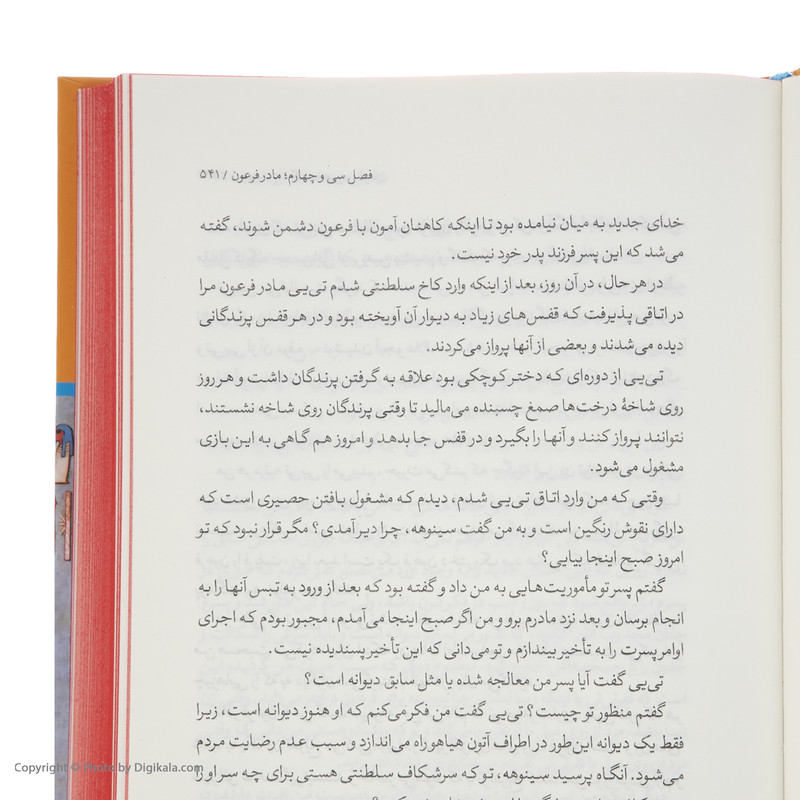 فصل سی و چهارم؛ مادر فرعون / ۵۴۱
خدای جدید به میان نیامده بود تا اینکه کاهنان آمون با فرعون دشمن شوند، گفته
می‌شد که این پسر فرزند پدر خود نیست.
در هر حال، در آن روز، بعد از اینکه وارد کاخ سلطنتی شدم تی‌یی مادر فرعون مرا
در اتاقی پذیرفت که قفس‌های زیاد به دیوار آن آویخته بود و در هر قفس پرندگانی
دیده می‌شدند و بعضی از آنها پرواز می‌کردند.
تی‌یی از دوره‌ای که دختر کوچکی بود علاقه به گرفتن پرندگان داشت و هر روز
روی شاخهٔ درخت‌ها صمغ چسبنده می‌مالید تا وقتی پرندگان روی شاخه نشستند،
نتوانند پرواز کنند و آنها را بگیرد و در قفس جا بدهد و امروز هم گاهی به این بازی
مشغول می‌شود.
وقتی که من وارد اتاق تی‌یی شدم، دیدم که مشغول بافتن حصیری است که
دارای نقوش رنگین است و به من گفت سینوهه، چرا دیر آمدی؟ مگر قرار نبود که تو
امروز صبح اینجا بیایی؟
گفتم پسر تو مأموریت‌هایی به من داد و گفته بود که بعد از ورود به تبس آنها را به
انجام برسان و بعد نزد مادرم برو و من اگر صبح اینجا می‌آمدم، مجبور بودم که اجرای
اوامر پسرت را به تأخیر بیندازم و تو می‌دانی که این تأخیر پسندیده نیست.
تی‌یی گفت آیا پسر من معالجه شده یا مثل سابق دیوانه است؟
گفتم منظور تو چیست؟ تی‌یی گفت من فکر می‌کنم که او هنوز دیوانه است، زیرا
فقط یک دیوانه این‌طور در اطراف آتون هیاهو راه می‌اندازد و سبب عدم رضایت مردم
می‌شود. آنگاه پرسید سینوهه، تو که سرشکاف سلطنتی هستی برای چه سر او را
Copyright © Photo by Digikala.com